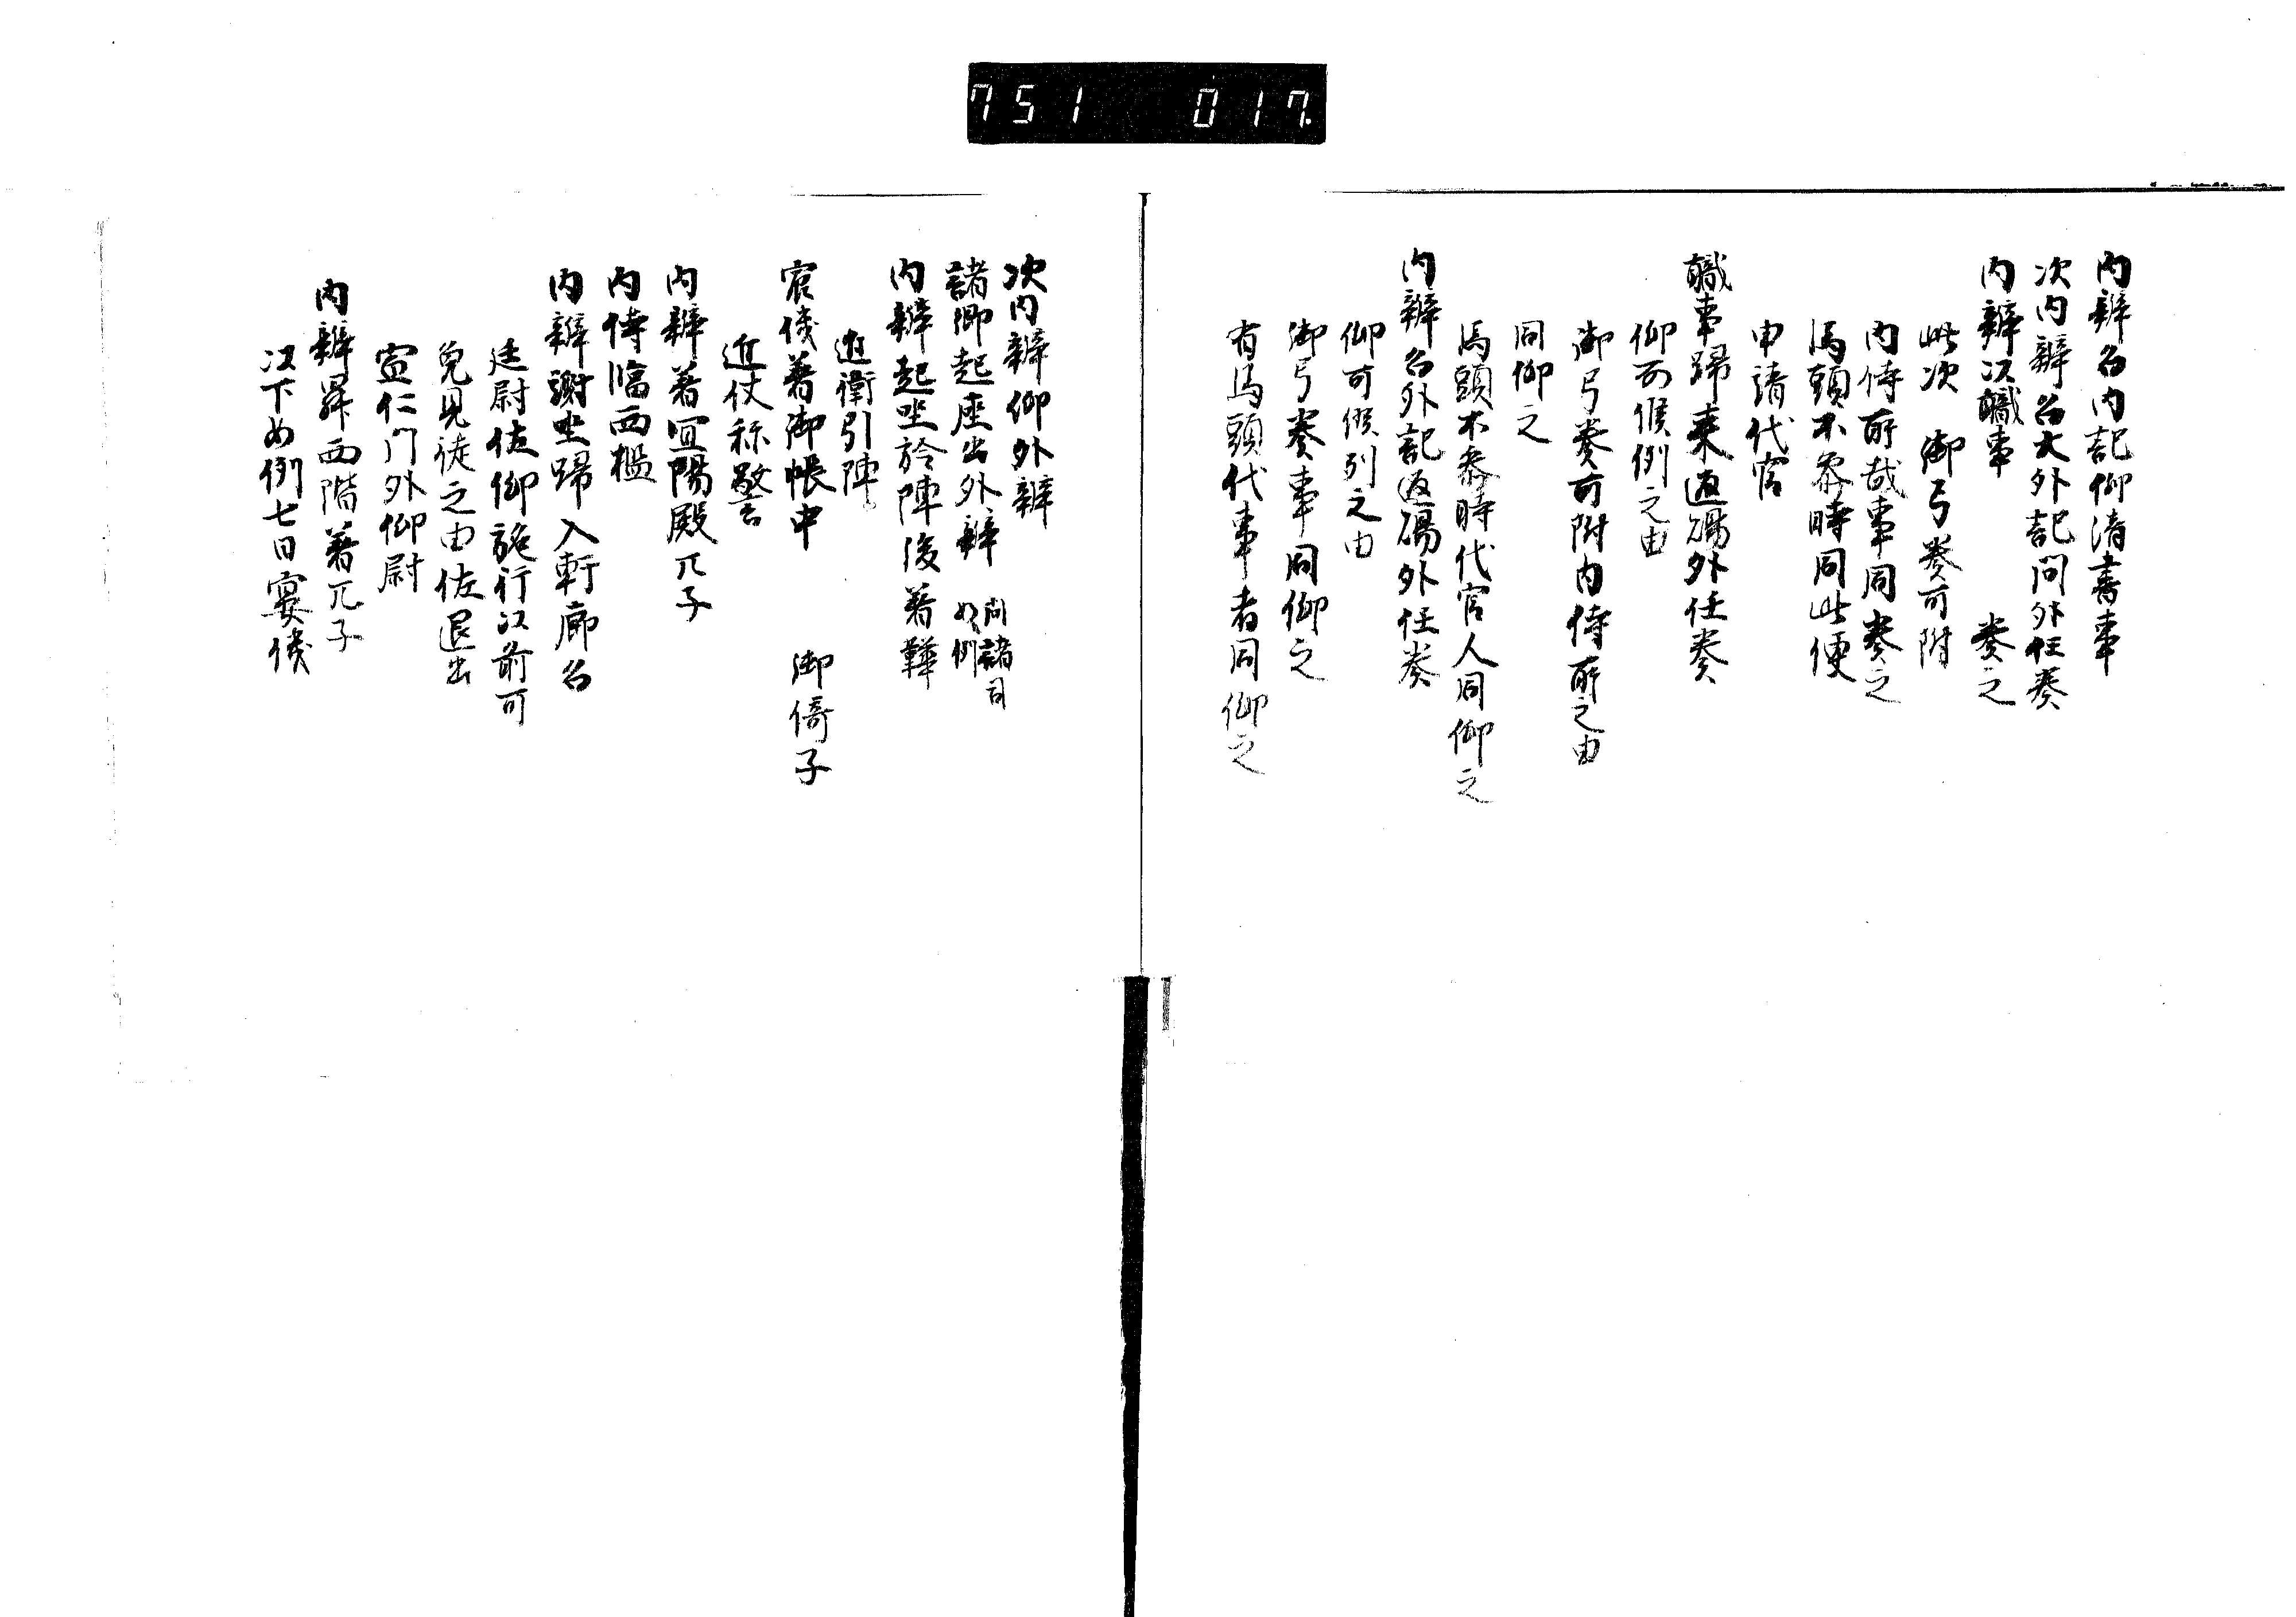 751 017.
内辨召内記仰清書事
次内辨召大外記問外任奏
内辨以職事 奏之
此次 御弓奏可附
内侍所哉事同奏之
馬頭不参時同此便
申請代官
職事歸来返賜外任奏
仰可候例之由
御弓奏可附内侍所之由
同仰之
馬頭不参時代官人同仰之
内辨召外記返賜外任奏
仰可候列之由
御弓奏事同仰之
有馬頭代事者同仰之
次内辨仰外辨
諸卿起座出外辨 問諸司如例
内辨起坐於陣後著靴
近衛引陣
宸儀著御帳中 御倚子
近仗称警
内辨著宜陽殿兀子
内侍臨西檻
内辨謝坐歸入軒廊召
廷尉佐仰詭行以前可
免見徒之由佐退出
宣仁門外仰尉
内辨昇西階著兀子
次下如例七日宴儀